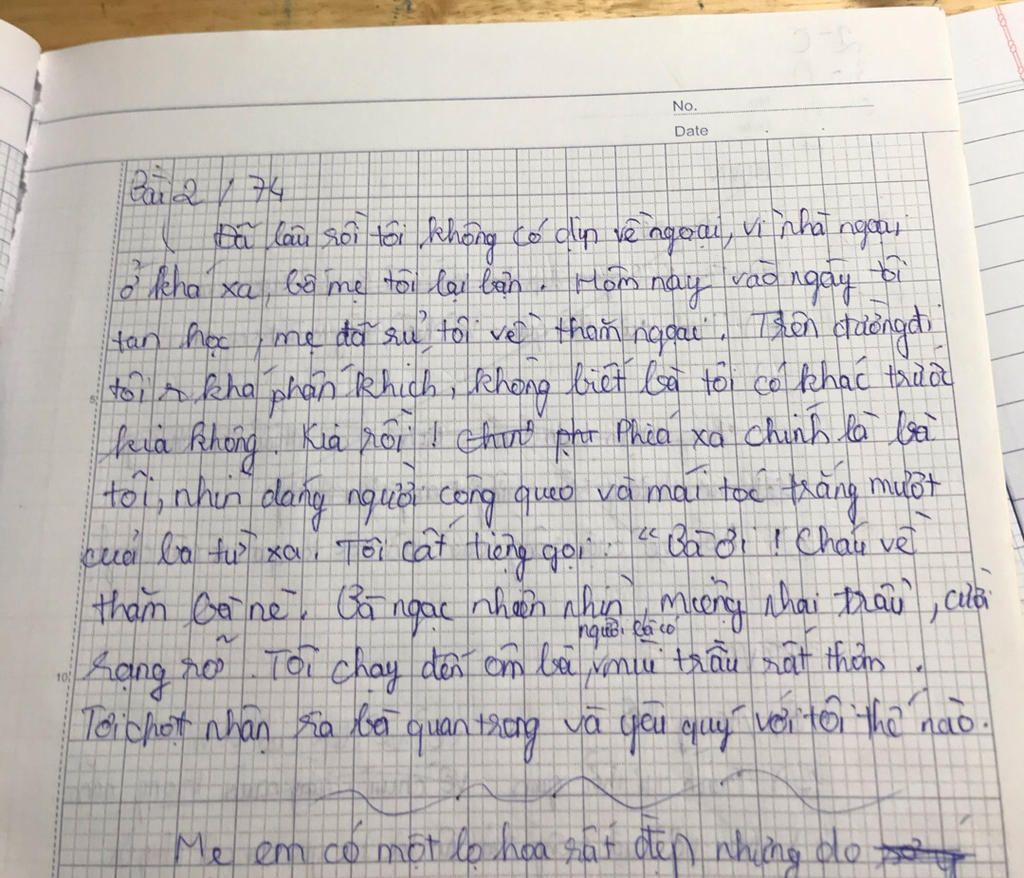 No.
Date
Bài 2 / 74
Đã lâu rồi tôi không có dịp về ngoại, vì nhà ngoại
ở khá xa, bố mẹ tôi lại bận. Hôm nay vào ngày tôi
tan học, mẹ đã rủ tôi về thăm ngoại. Trên đường đi
tôi khá phấn khích, không biết bà tôi có khác trước
kia không. Kia rồi! Phía xa chính là bà
tôi, nhìn dáng người cong queo và mái tóc trắng mướt
của bà từ xa. Tôi cất tiếng gọi: "Bà ơi! Cháu về
thăm bà nè. Bà ngạc nhiên nhìn, miệng nhai trầu, cười
rạng rỡ. Tôi chạy đến ôm bà, người bà có mùi trầu rất thơm.
Tôi chợt nhận ra bà quan trọng và yêu quý với tôi thế nào.
10
Mẹ em có một lọ hoa rất đẹp nhưng do